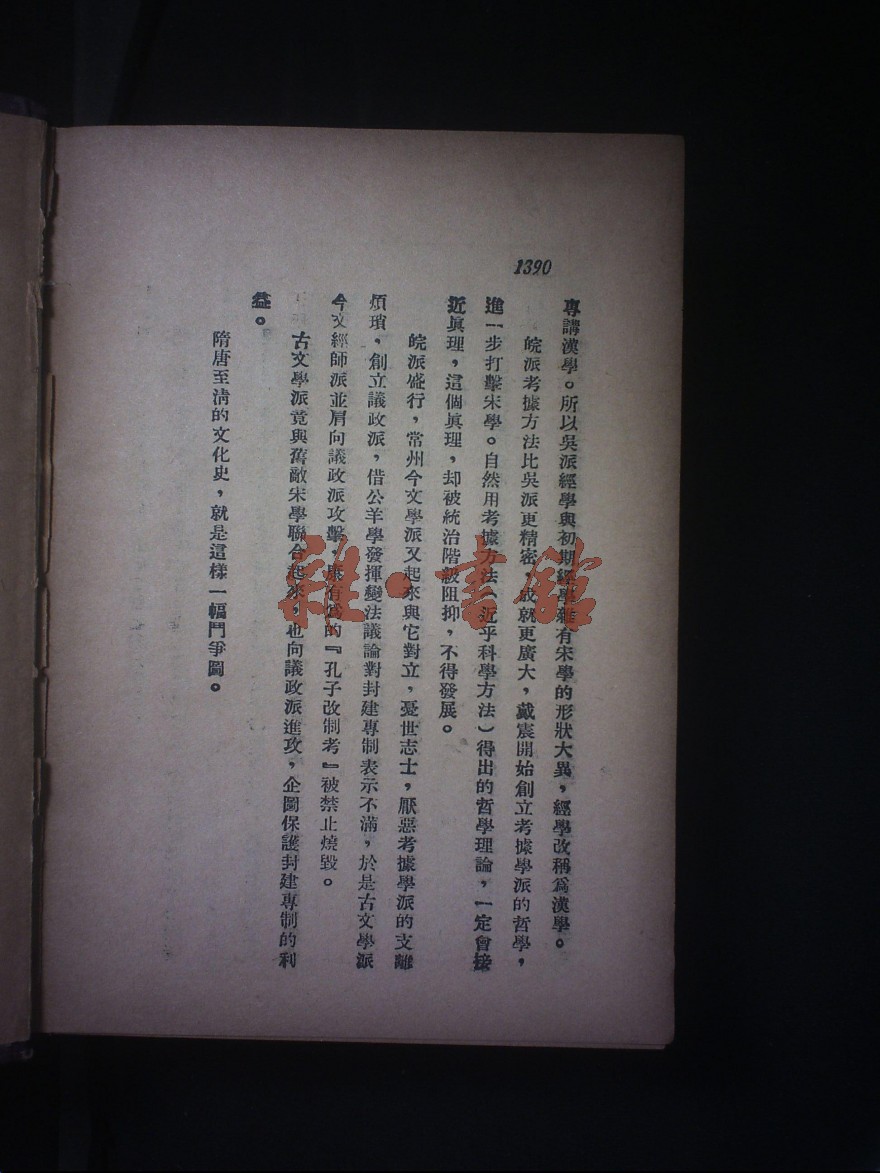 1390
專講漢學。所以吳派經學與初期經學雜有宋學的形狀大異，經學改稱爲漢學。
皖派考據方法比吳派更精密，成就更廣大，戴震開始創立考據學派的哲學，
進一步打擊宋學。自然用考據方法（近乎科學方法）得出的哲學理論，一定會接
近眞理，這個眞理，却被統治階級阻抑，不得發展。
皖派盛行，常州今文學派又起來與它對立，憂世志士，厭惡考據學派的支離
煩瑣，創立議政派，借公羊學發揮變法議論對封建專制表示不滿，於是古文學派
今文經師派並肩向議政派攻擊，康有爲的『孔子改制考』被禁止燒毀。
古文學派竟與舊敵宋學聯合起來，也向議政派進攻，企圖保護封建專制的利
益。
隋唐至清的文化史，就是這樣一幅鬥爭圖。
雜·書館